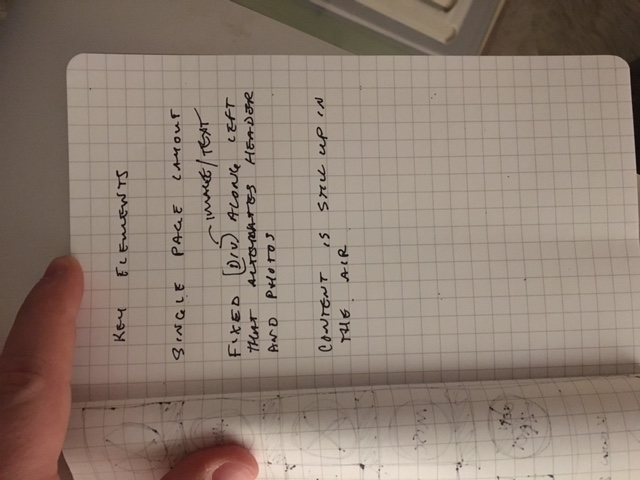 KEY ELEMENTS
SINGLE PAGE LAYOUT
IMAGE/TEXT
FIXED (DIV) ALONG LEFT
THAT ALTERNATES HEADER
AND PHOTOS
CONTENT IS STILL UP IN
THE AIR